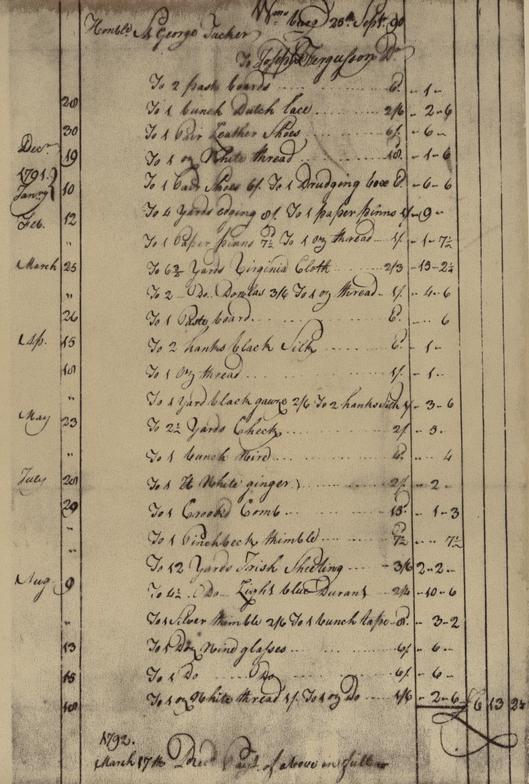 Wms burg 20th Sept. 90
Honble St George Tucker
To Joseph Fergusson Dr
To 2 paste boards 6d. - 1 -
20 To 1 bunch Dutch lace 2/6 - 2 - 6
30 To 1 Pair Leather Shoes 6/. - 6 -
Decr 19 To 1 oz White thread 18d. - 1 - 6
1791. Janry 10 To 1 pair Shoes 6/. To 1 Drudging box 6d - 6 - 6
Feb. 12 To 4 Yards edging 8d. To 1 paper pinns - 9 -
" To 1 Paper pinns 7½d To 1 oz thread 1/. - 1 - 7½
March 25 To 6¾ Yards Virginia Cloth 2/3 - 15 - 2¼
" To 2 Do. Dowlas 3/6 To 1 oz thread 1/. - 4 - 6
26 To 1 Paste board 6d. 6
Ap. 15 To 2 hanks black Silk 6d. - 1 -
18 To 1 oz thread 1/. - 1 -
" To 1 Yard black gawze 2/6 To 2 hanks Silk - 3 - 6
May 23 To 2½ Yards Check 2/ - 5 -
" To 1 bunch 4
July 28 To 1 lb White ginger 2/. - 2 -
29 To 1 Crooked Comb 15d. - 1 - 3
" To 1 Pinchbeck thimble 7½ 7½
" To 12 Yards Irish Sheeting 3/6 2 - 2 -
Aug 9 To 4½ Do Light blue Durant 2/4 - 10 - 6
" To 1 Silver thimble 2/6 To 1 bunch tape 8d. - 3 - 2
13 To 1 Doz Wind glasses 6/. - 6 -
15 To 1 Do Do 6/. - 6 -
18 To 1 oz White thread 1/. To 1 oz Do 1/6 - 2 - 6 £6 13 2¼
1792.
March 17th Recd Paymt of above in full